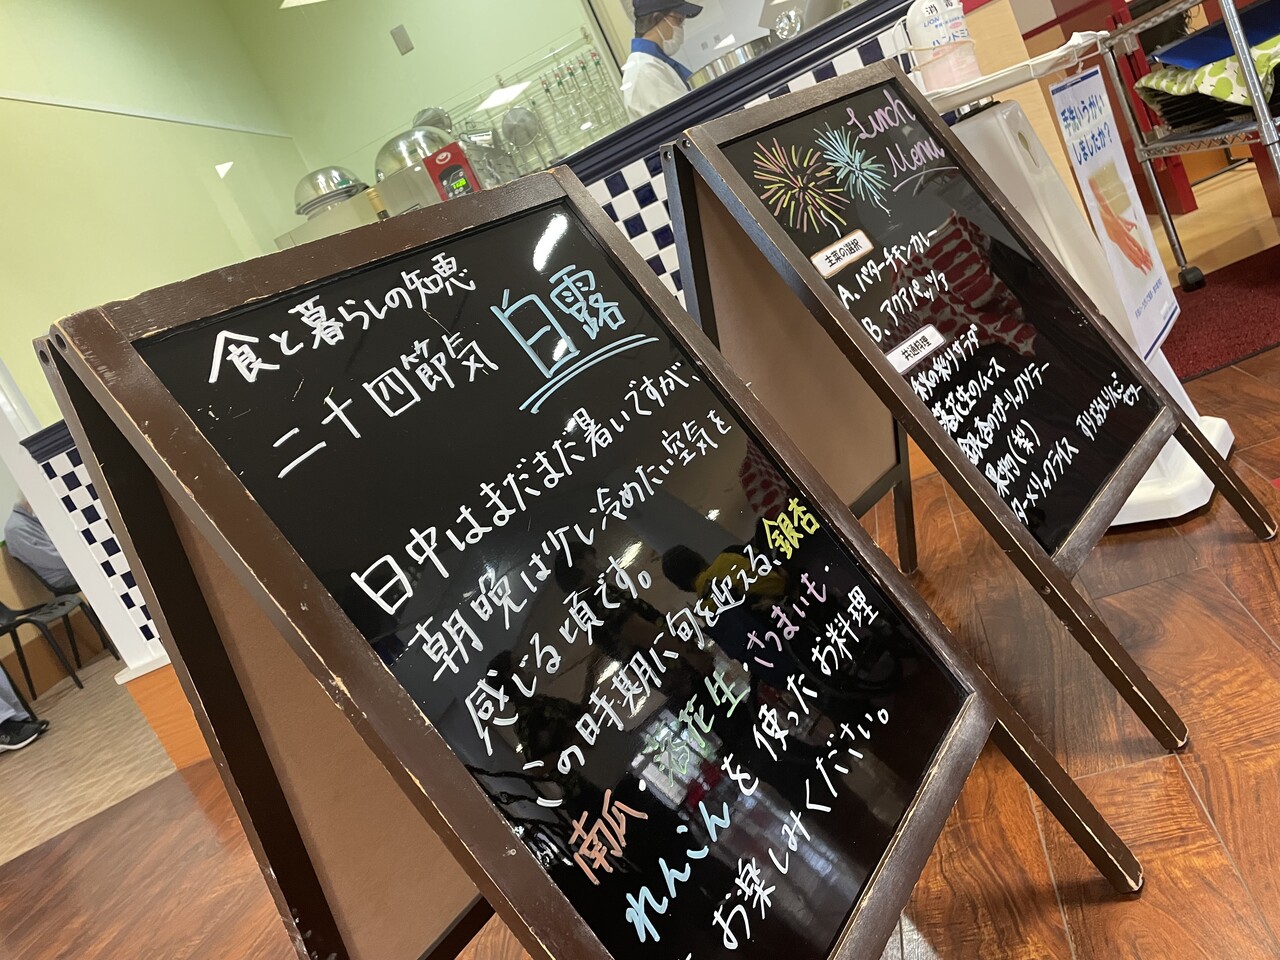 食と暮らしの知恵
二十四節気 白露
日中はまだまだ暑いですが、
朝晩は少し冷めたい空気を
感じる頃です。
この時期に旬を迎える、銀杏
南瓜・落花生・さつまいも・
れんこんを使ったお料理
お楽しみください。
Lunch
Menu
主菜の選択
A. バターチキンカレー
B. アクアパッツァ
共通料理
落花生のムース
果物(梨)
ターメリックライス
消毒
LION
ハンドミ
手洗いうがい
しましたか?